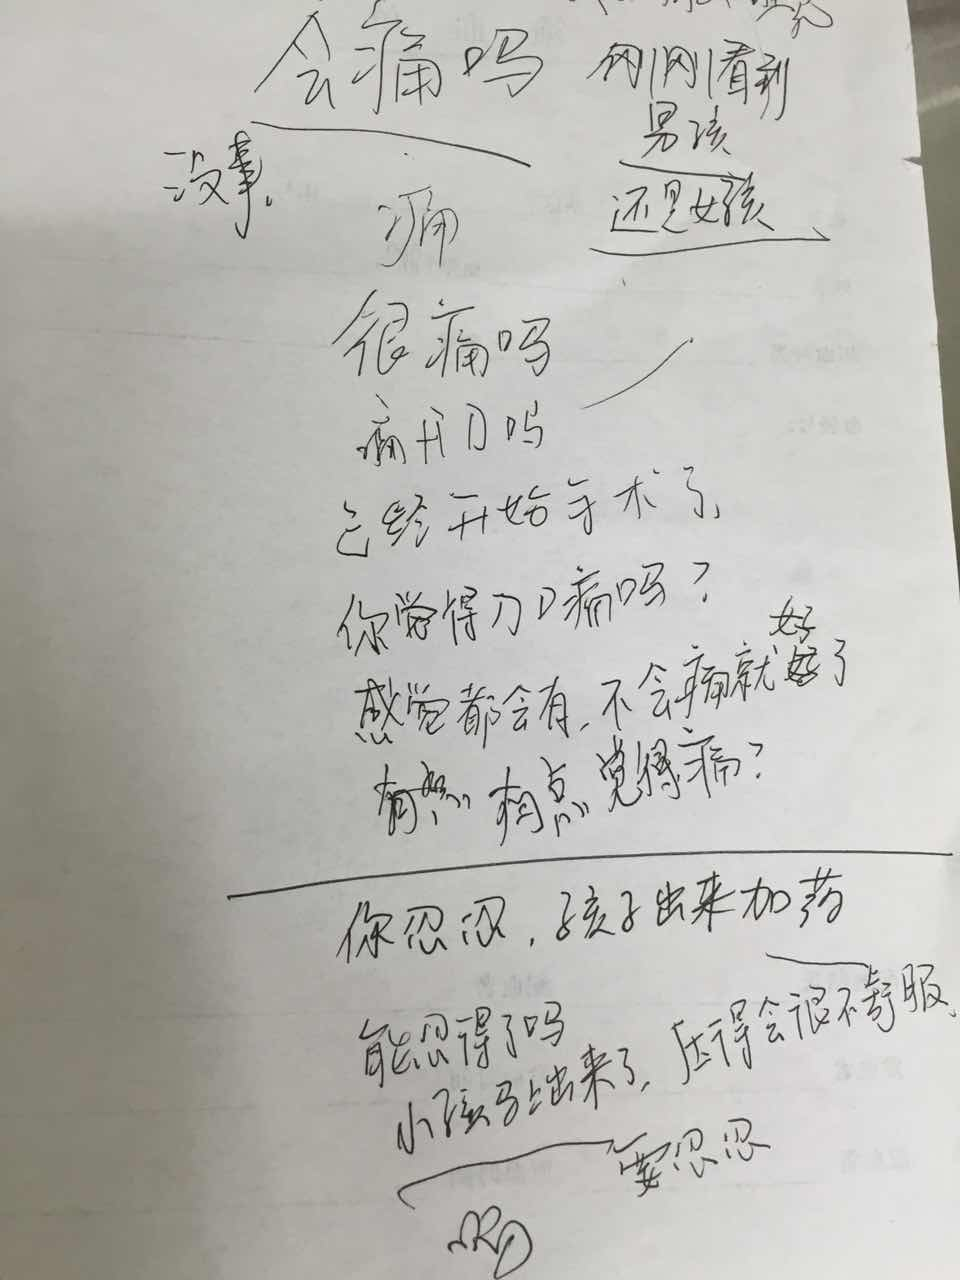 会痛吗
刚刚看到
男孩
还是女孩
没事。
痛
很痛吗
痛 开刀吗
已经开始手术了
你觉得刀口痛吗?
感觉都会有,不会痛就好了
有点 觉得痛?
你忍忍,孩子出来加药
能忍得了吗
小孩马上出来了,压得会很不舒服、
要忍忍